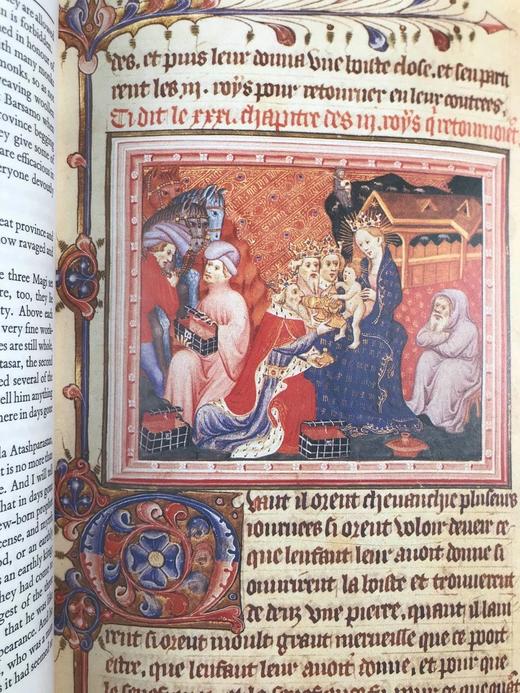 are allowed
is forbidden.
in honour of
many monks
monks, so as
woollen
Barsamo when
begging
give some of
are efficacious in
devoutly
province and
ravaged and
three Magi set
too, they lie
Above each
very fine work-
are still whole,
the second
several of the
him anything
in days gone
Atashparastan,
is no more than
And I will tell
in days gone
prophet
and myrrh
or an earthly
an earthly king
had come to
of the
that he was
And
who was a
it had seemed
des. et puis leur donna vne boiste close. et sen parti
rent les .iij. roys pour retourner en leur contrees.
Ci dit le xxxi. chapitre des .iij. roys q̃ retournoiẽt
Quant il orent cheuauchie pluseurs
iournees si orent voloir de veir ce
que lenfant leur auoit donne si
ouurirent la boiste et trouuerent
dedenz vne pierre. quant il lau
rent si orent moult grant merueille que ce poit
estre, que lenfant leur auoit donne, et pour quele